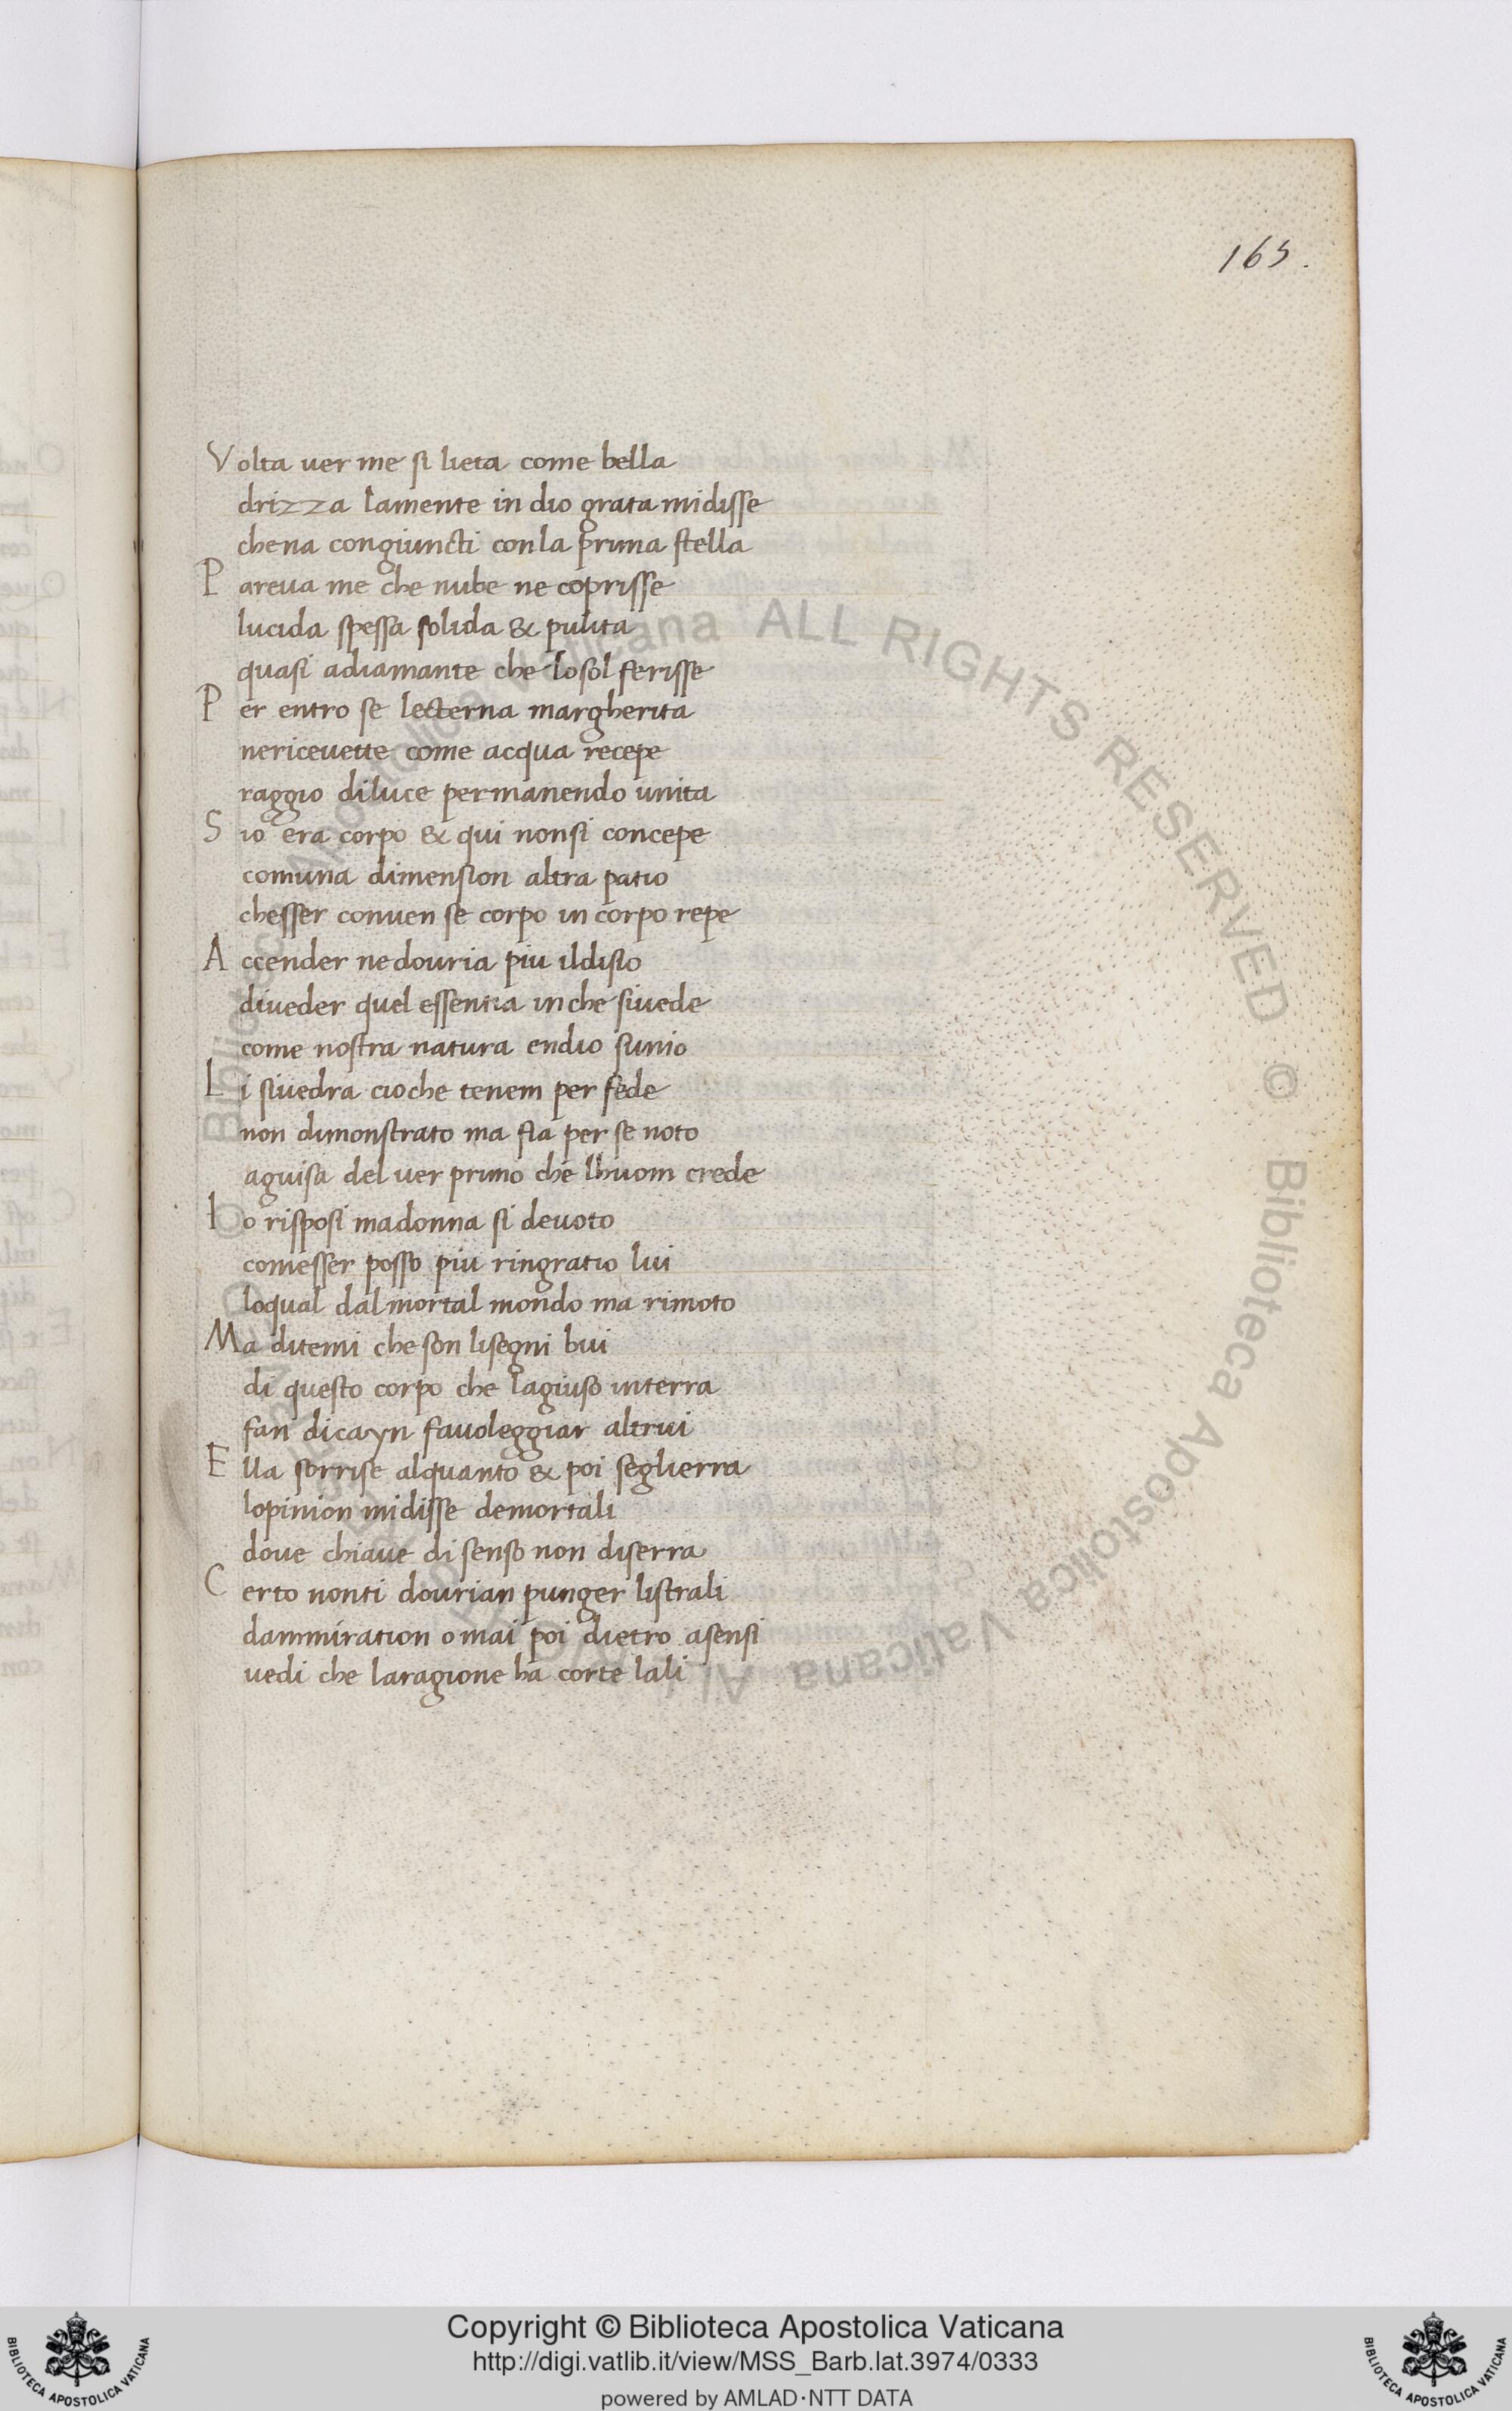 165.
Volta uer me si lieta come bella
drizza lamente in dio grata midisse
chena congiuncti conla prima stella
Pareua me che nube ne coprisse
lucida spessa solida & pulita
quasi adiamante che losol ferisse
Per entro se lecterna margherita
nericeuette come acqua recepe
raggio diluce permanendo unita
Sio era corpo & qui nonsi concepe
comuna dimension altra patio
chesser conuen se corpo in corpo repe
Accender nedouria piu ildisio
diueder quel essentia inche siuede
come nostra natura endio sunio
Li siuedra cioche tenem per fede
non dimonstrato ma fia per se noto
aguisa del uer primo che lhuom crede
Io risposi madonna si deuoto
comesser posso piu ringratio lui
loqual dal mortal mondo ma rimoto
Ma ditemi che son lisegni bui
di questo corpo che lagiuso interra
fan dicayn fauoleggiar altrui
Ella sorrise alquanto & poi seglierra
lopinion midisse demortali
doue chiaue di senso non diserra
Certo nonti dourian punger listrali
dammiration omai poi dietro asensi
uedi che laragione ha corte lali
Biblioteca Apostolica Vaticana ALL RIGHTS RESERVED © Biblioteca Apostolica Vaticana
Copyright © Biblioteca Apostolica Vaticana
http://digi.vatlib.it/view/MSS_Barb.lat.3974/0333
powered by AMLAD·NTT DATA
BIBLIOTECA APOSTOLICA VATICANA
BIBLIOTECA APOSTOLICA VATICANA